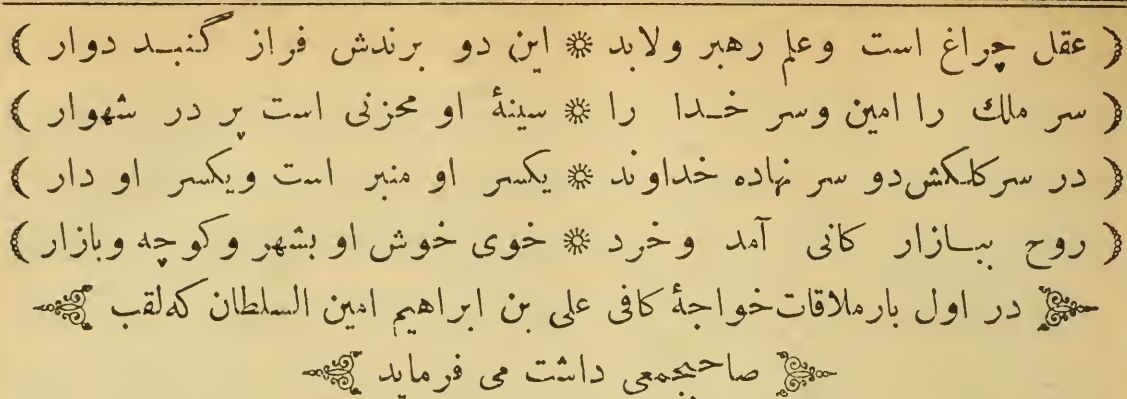 ﴿ عقل چراغ است وعلم رهبر ولابد ❊ این دو برندش فراز گنبـد دوار ﴾
﴿ سر ملك را امین وسر خـدا را ❊ سینهٔ او مخزنی است پر در شهوار ﴾
﴿ در سر کلـکش دو سر نهاده خداوند ❊ یکسر او منبر است ویکسر او دار ﴾
﴿ روح ببـازار کانی آمد وخرد ❊ خوی خوش او بشهر وکوچه وبازار ﴾
در اول بار ملاقات خواجهٔ کافی علی بن ابراهیم امین السلطان که لقب
صاحبجمعی داشت می فرماید